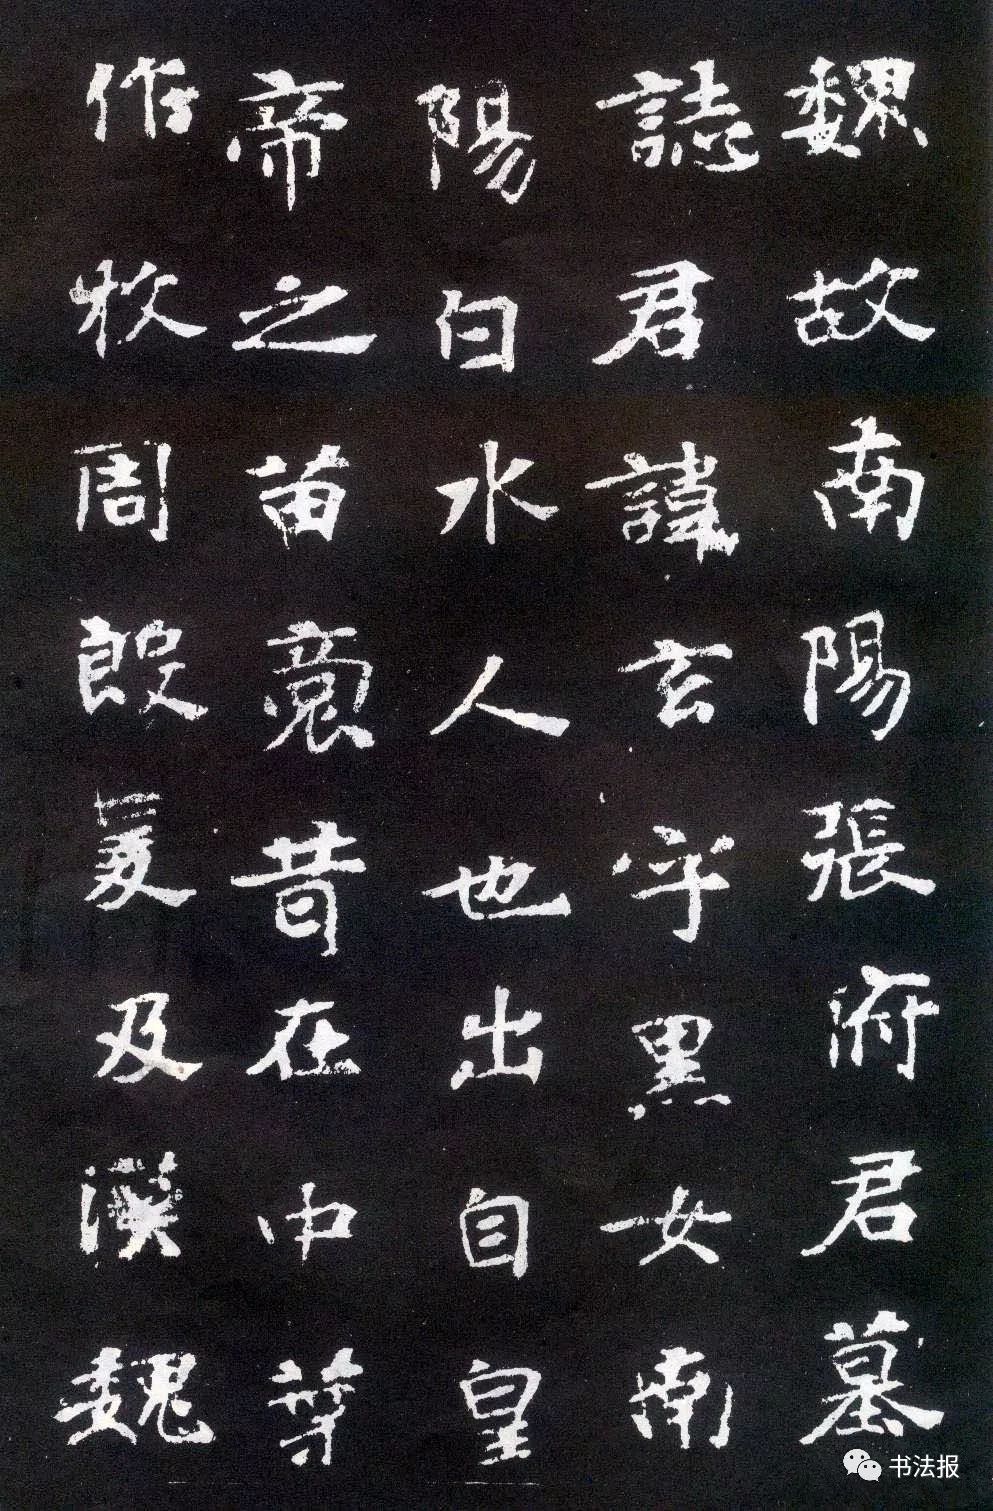 魏故南陽張府君墓
誌君諱玄字黑女南
陽白水人也出自皇
帝之苗裔昔在中葉
作牧周殷爰及漢魏
书法报